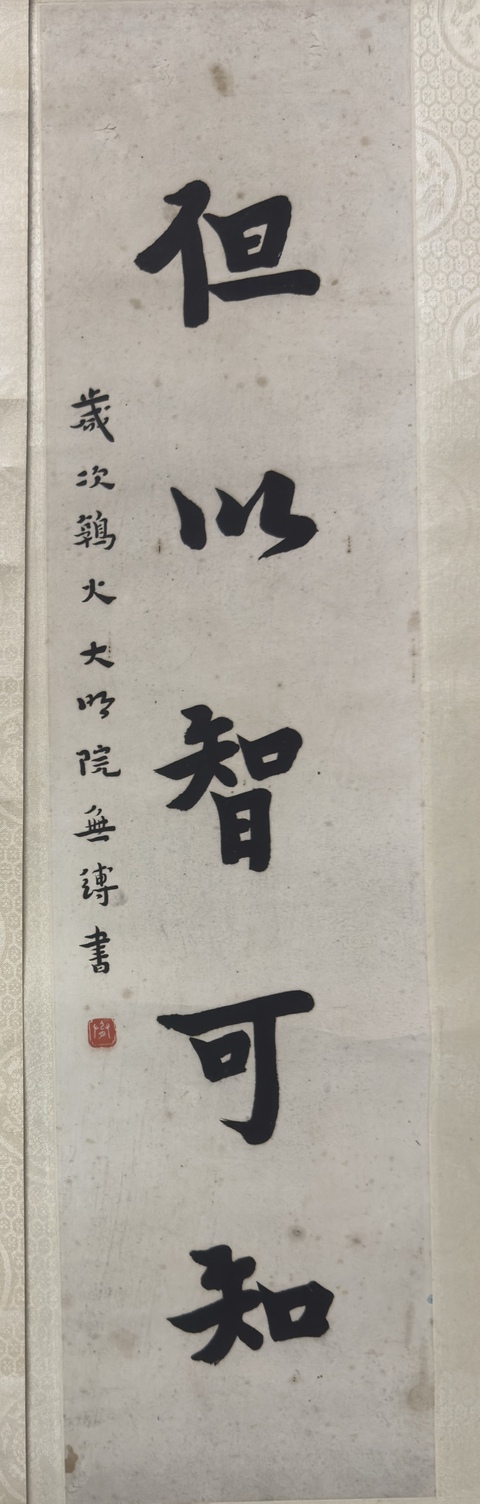 但以智可知
歲次鶉火大明院無縛書